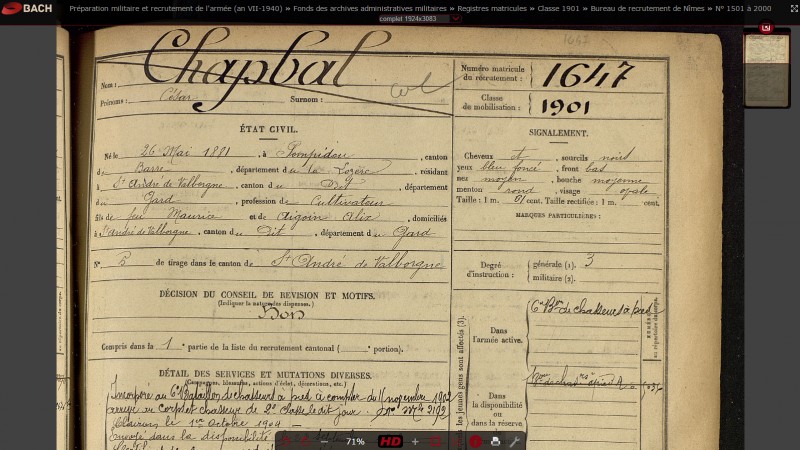 BACH Préparation militaire et recrutement de l'armée (an VII-1940) » Fonds des archives administratives militaires » Registres matricules » Classe 1901 » Bureau de recrutement de Nîmes » N° 1501 à 2000
complet 1924x3083
1647
Nom : Chapbal
Prénoms : César Surnom :
Numéro matricule du recrutement : 1647
Classe de mobilisation : 1901
ÉTAT CIVIL.
Né le 26 Mai 1881, à Pompidou, canton
de Barre, département de la Lozère, résidant
à St André de Valborgne, canton du Dit, département
du Gard, profession de Cultivateur
fils de feu Maurice et de Aigoin Alix, domiciliés
à St André de Valborgne, canton du Dit, département du Gard
N° 5 de tirage dans le canton de St André de Valborgne
SIGNALEMENT.
Cheveux et sourcils noirs
yeux bleu foncé, front bas
nez moyen, bouche moyenne
menton rond, visage ovale
Taille : 1 m. 61 cent. Taille rectifiée : 1 m. cent.
MARQUES PARTICULIÈRES :
Degré d'instruction : générale (1). 3
militaire (2).
DÉCISION DU CONSEIL DE RÉVISION ET MOTIFS.
(Indiquer la nature des dispenses.)
Bon
Compris dans la 1e partie de la liste du recrutement cantonal ( portion).
DÉTAIL DES SERVICES ET MUTATIONS DIVERSES.
(Campagnes, blessures, actions d'éclat, décorations, etc.)
Incorporé au 6e Bataillon de chasseurs à pied à compter du 15 novembre 1902
arrivé au corps et chasseur de 2e classe le dit jour. No Mle 2192
Clairon le 1er Octobre 1904
Envoyé dans la disponibilité
Dans l'armée active.
6e Bon de chasseurs à pied
Dans la disponibilité ou dans la réserve
71% HD